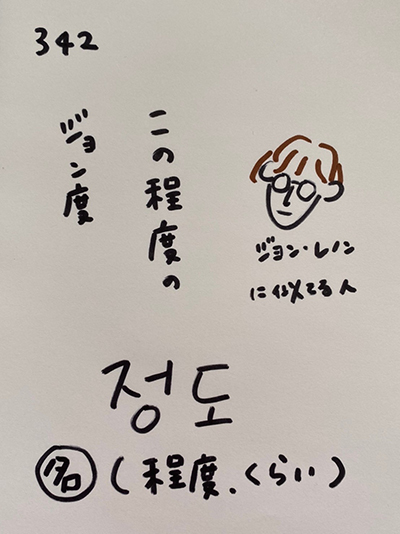 342
この程度の
ジョン度
ジョン・レノン
に似てる人
정도
名(程度、くらい)